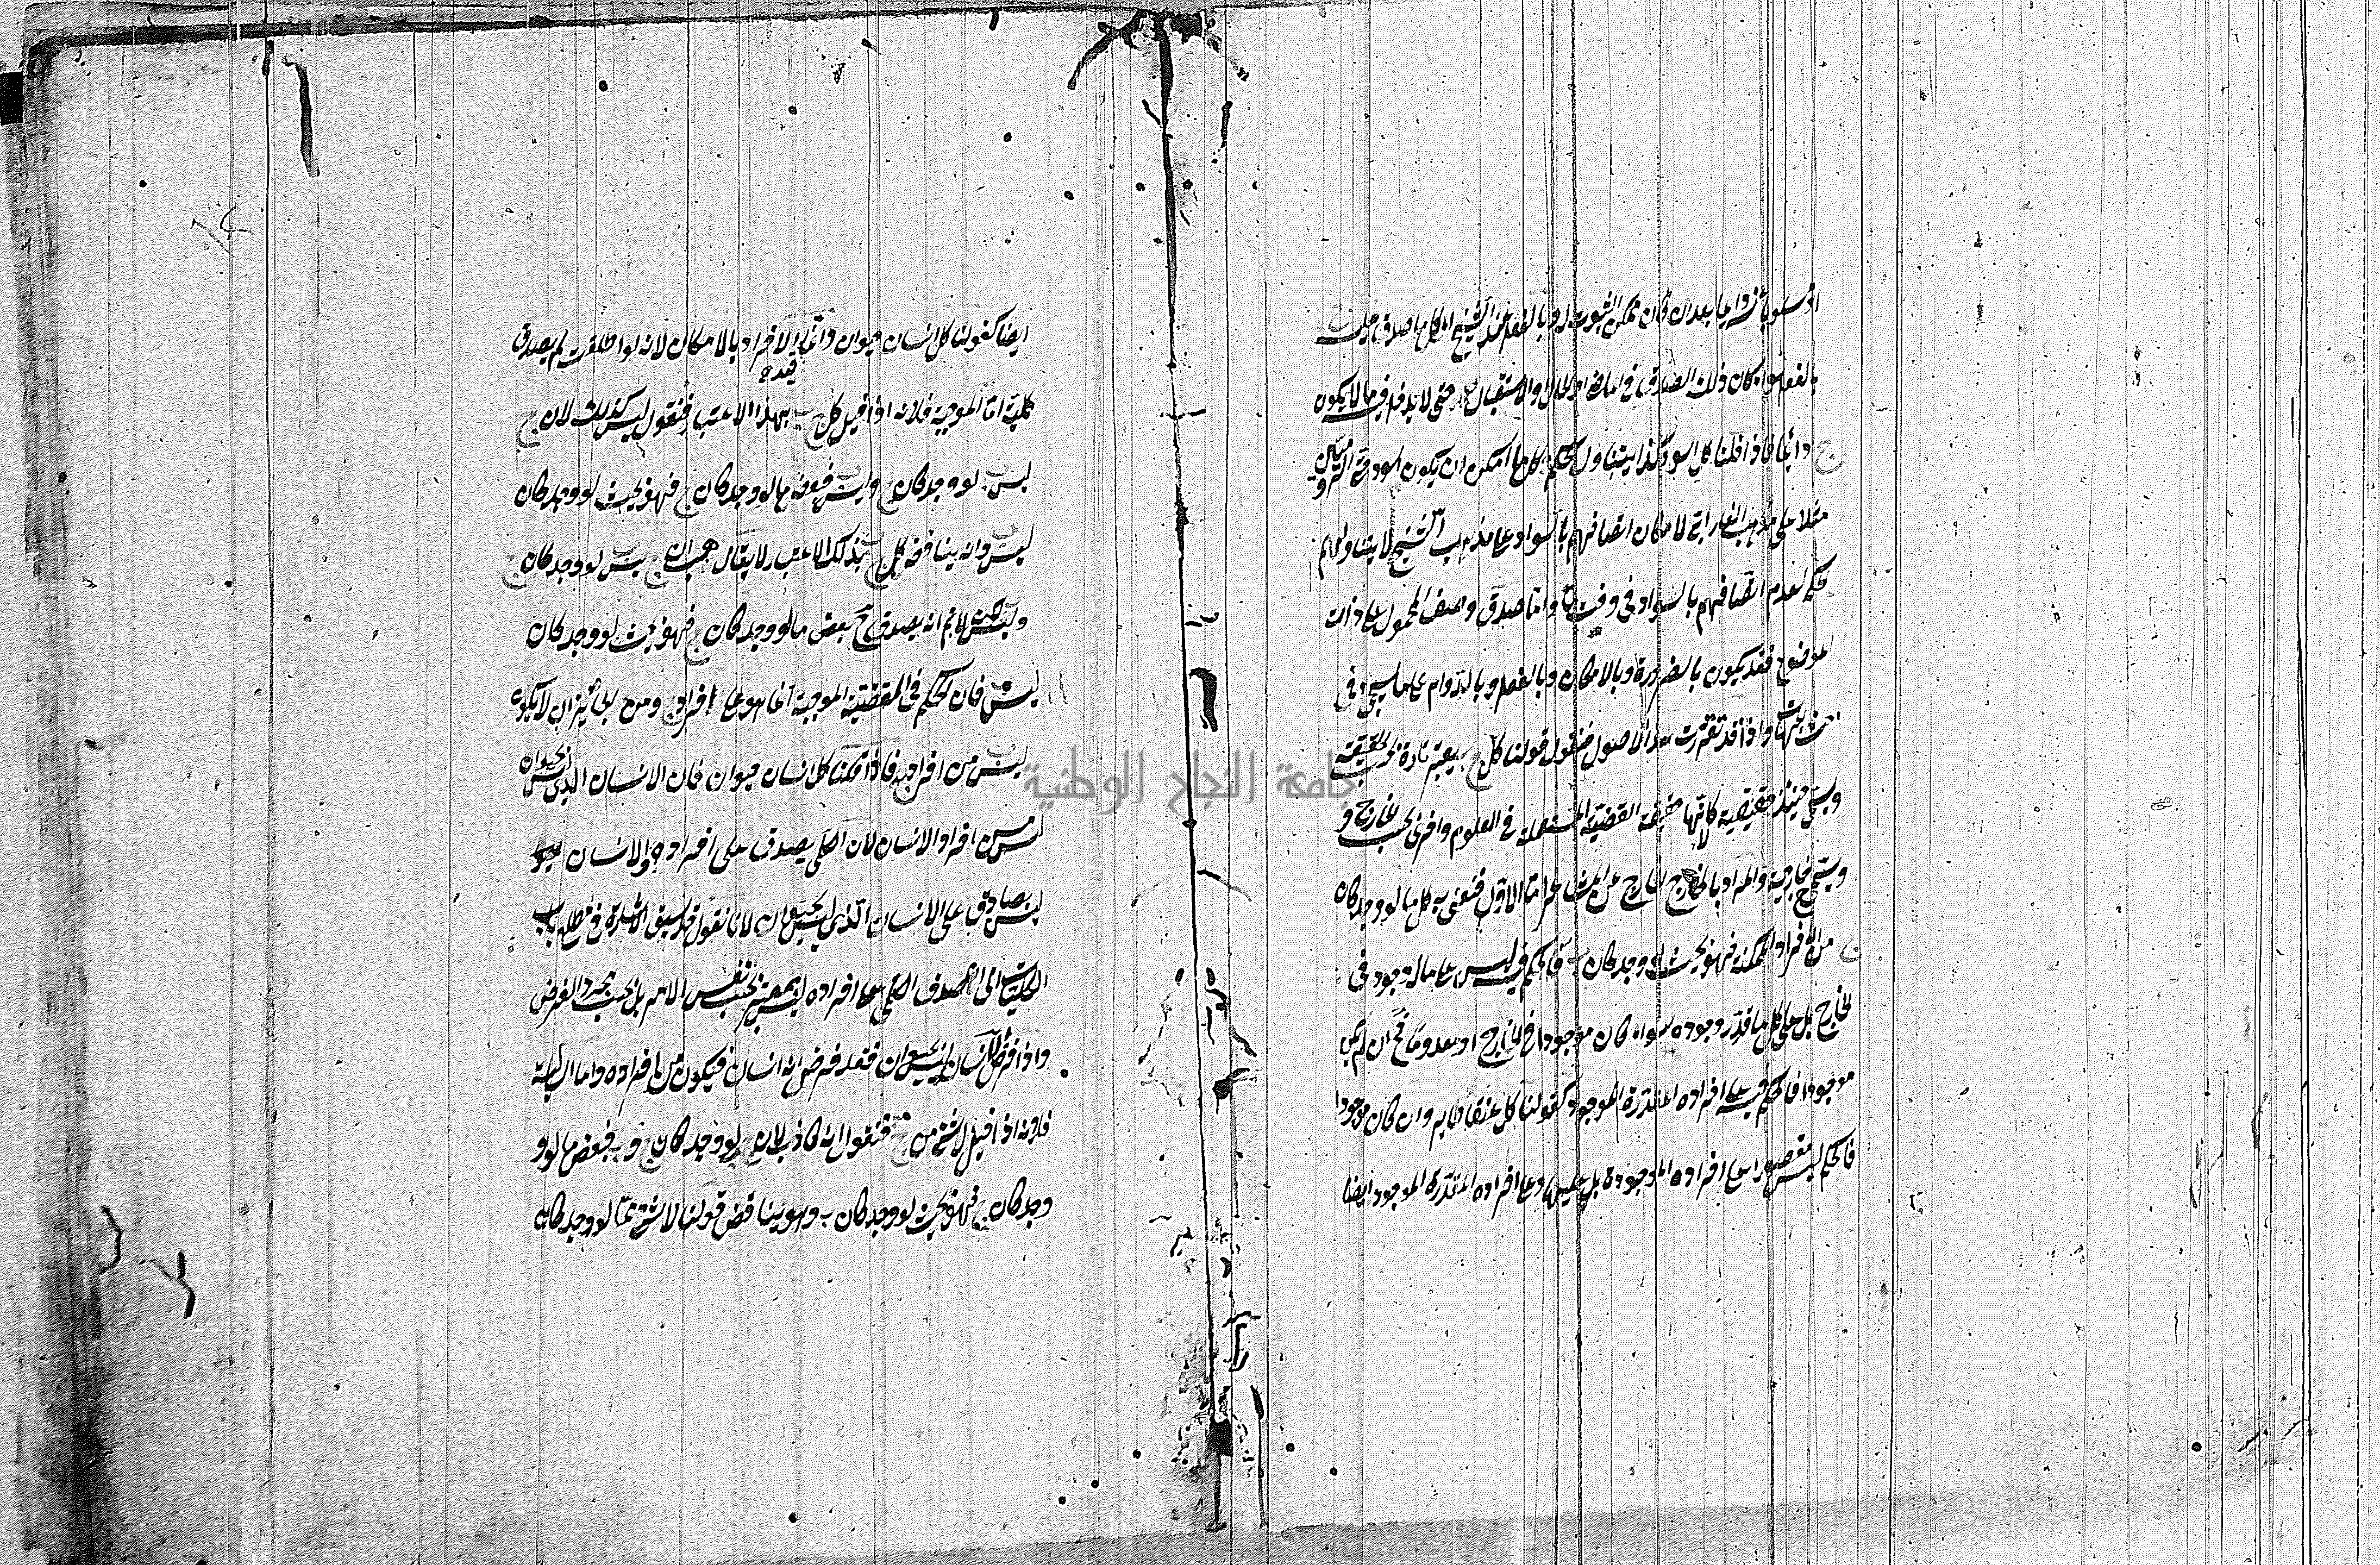 او مسلوبا عنه دائما بعد ان كان ممكن الثبوت له وبالفعل عند الشيخ اى كل ما صدق عليه ج
بالفعل سواء كان ذلك الصدق فى الماضى او الحال والاستقبال حتى لا يدخل فيه ما لا يكون
ج دائما فاذا قلنا كل اسود كذا يتناول الحكم كل ما امكن ان يكون اسود حتى الروميين
مثلا على مذهب الفارابى لامكان اتصافهم بالسواد وعلى مذهب الشيخ لا يتناولهم
الحكم لعدم اتصافهم بالسواد فى وقت ما واما صدق وصف المحمول على ذات
الموضوع فقد يكون بالضرورة وبالامكان وبالفعل وبالدوام على ما سيجئ فى
واذا قد تقررت هذه الاصول فنقول قولنا كل ج ب يعتبر تارة بحسب الحقيقة
ويسمى حينئذ حقيقية كانها حقيقة القضية المستعملة فى العلوم واخرى بحسب الخارج و
ويسمى خارجية والمراد بالخارج الخارج عن المشاعر اما الاول فنعنى به كل ما لو وجد كان
ج من الافراد الممكنة فهو بحيث لو وجد كان ب فالحكم فيه ليس على ما له وجود فى
الخارج بل على كل ما قدر وجوده سواء كان موجودا فى الخارج او معدوما فح ان لم يكن
موجودا فالحكم فيه على افراده المقدرة الموجود كقولنا كل عنقا طاير وان كان موجودا
فالحكم ليس مقصورا على افراده الموجودة بل عليها وعلى افراده المقدرة الموجود ايضا
ايضا كقولنا كل انسان حيوان وانما قيد الافراد بالامكان لانه لو اطلقت لم يصدق
كلية اما الموجبة فلانه اذا قيل كل ج ب بهذا الاعتبار فنقول ليس كذلك لان ج
ليس ب لو وجد كان ج وليس ب فبعض ما لو وجد كان ج فهو بحيث لو وجد كان
ليس ب وانه يناقض كل ج ب بذلك الاعتبار لا يقال هب ان ج ليس ب لو وجد كان ج
وليس ب لكن لا نم انه يصدق ح بعض ما لو وجد كان ج فهو بحيث لو وجد كان
ليس ب فان الحكم فى القضية الموجبة انما هو على افراد ج ومن الجائز ان لا يكون
ليس ب من افراد ج فاذا قلنا كل انسان حيوان فان الانسان الذى ليس بحيوان
ليس من افراد الانسان لان الكلى يصدق على افراده والانسان
ليس بصادق على الانسان الذى ليس بحيوان لانا نقول قد سبق الاشارة فى مطلع باب
الكليات الى ان صدق الكلى على افراده ليس بمعتبر بحسب نفس الامر بل بحسب مجرد الفرض
واذا فرض انسان ليس بحيوان فقد فرض انه انسان فيكون من افراده واما السالبة
فلانه اذا قيل لا شئ من ج ب فنقول انه كاذب لان ج ب لو وجد كان ج و ب فبعض ما لو و
وجد كان ج فهو بحيث لو وجد كان ب وهو يناقض قولنا لا شئ مما لو وجد كان
جامعة النجاح الوطنية